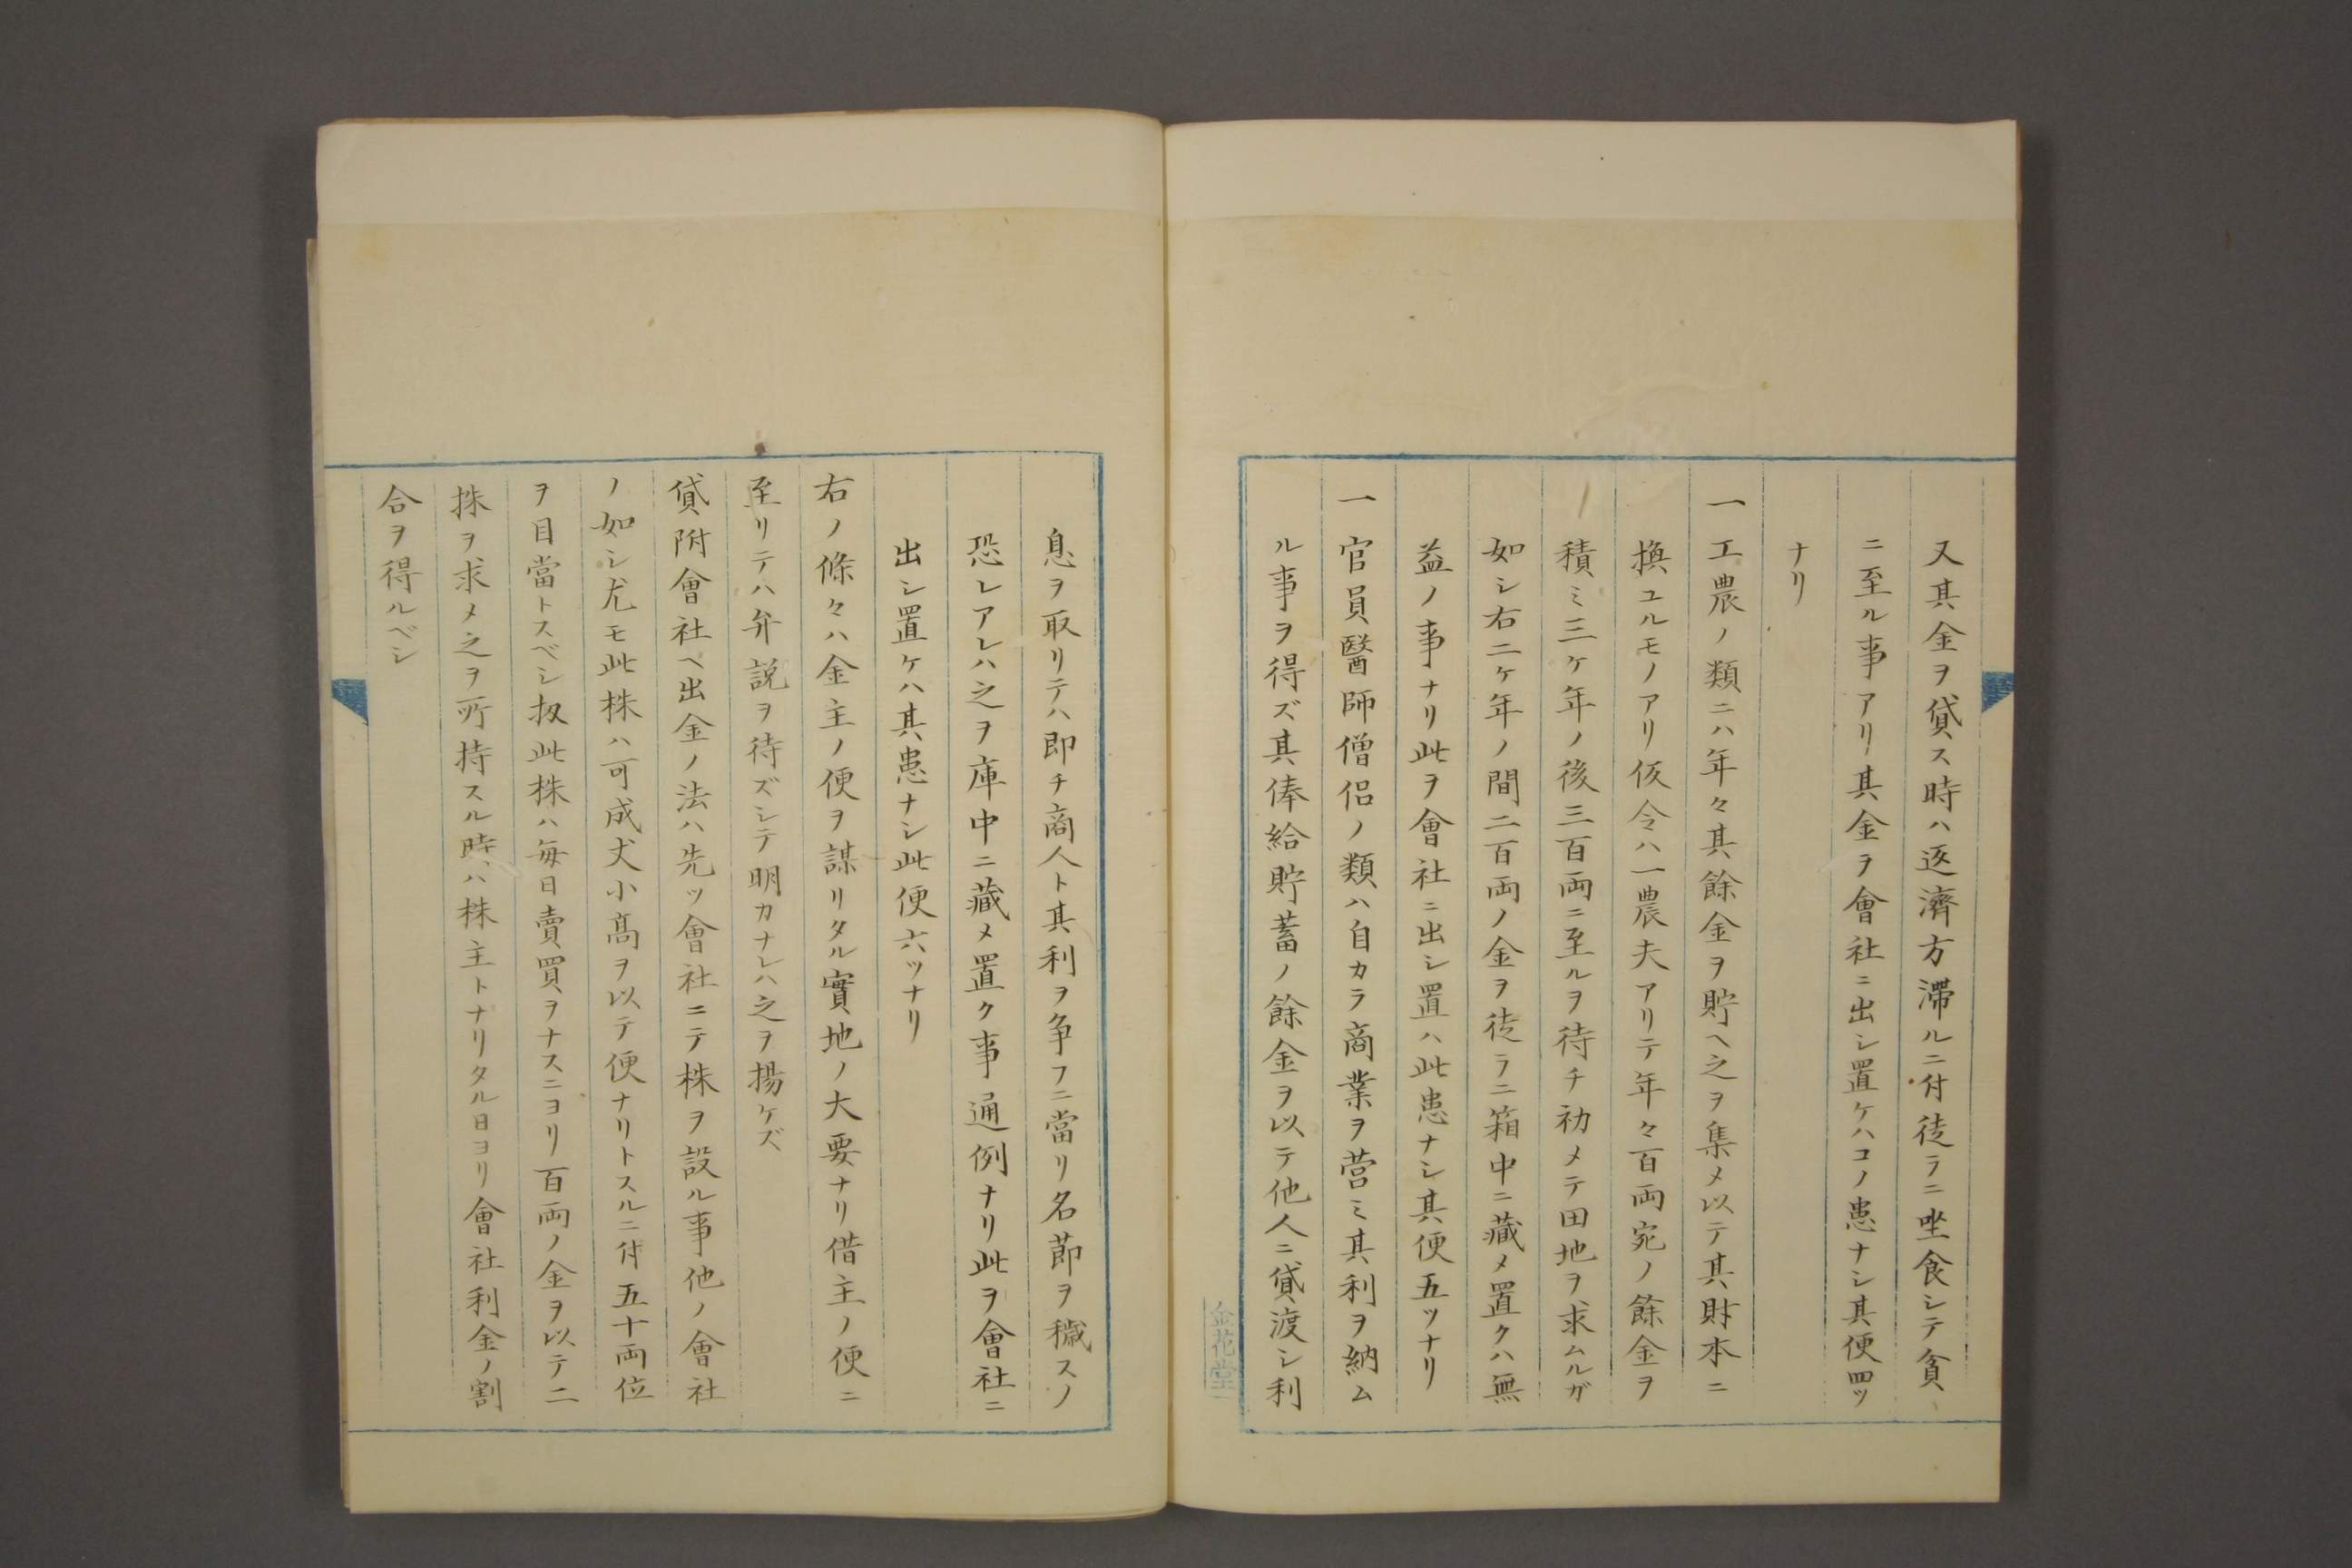 又其金ヲ貸ス時ハ返濟方滯ルニ付徒ラニ坐食シテ貧
ニ至ル事アリ其金ヲ會社ニ出シ置ケハコノ患ナシ其便四ッ
ナリ
一工農ノ類ニハ年々其餘金ヲ貯ヘ之ヲ集メ以テ其財本ニ
換ユルモノアリ仮令ハ一農夫アリテ年々百両宛ノ餘金ヲ
積ミ三ケ年ノ後三百両ニ至ルヲ待チ初メテ田地ヲ求ムルガ
如シ右二ケ年ノ間二百両ノ金ヲ徒ラニ箱中ニ藏メ置クハ無
益ノ事ナリ此ヲ會社ニ出シ置ハ此患ナシ其便五ッナリ
一官員醫師僧侶ノ類ハ自カラ商業ヲ营ミ其利ヲ納ム
ル事ヲ得ズ其俸給貯蓄ノ餘金ヲ以テ他人ニ貸渡シ利
金花堂
息ヲ取リテハ即チ商人ト其利ヲ争フニ當リ名節ヲ穢スノ
恐レアレハ之ヲ庫中ニ藏メ置ク事通例ナリ此ヲ會社ニ
出シ置ケハ其患ナシ此便六ッナリ
右ノ條々ハ金主ノ便ヲ謀リタル實地ノ大要ナリ借主ノ便ニ
至リテハ弁説ヲ待ズシテ明カナレハ之ヲ揚ケズ
貸附會社ヘ出金ノ法ハ先ッ會社ニテ株ヲ設ル事他ノ會社
ノ如シ尤モ此株ハ可成丈小高ヲ以テ便ナリトスルニ付五十両位
ヲ目當トスベシ扨此株ハ毎日賣買ヲナスニヨリ百両ノ金ヲ以テ二
株ヲ求メ之ヲ所持スル時ハ株主トナリタル日ヨリ會社利金ノ割
合ヲ得ルベシ